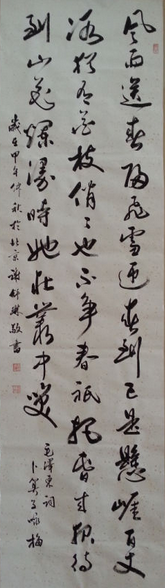 風雨送春歸飛雪迎春到已是懸崖百丈
冰猶有花枝俏々也不爭春祇把春來報待
到山花爛漫時她在叢中笑
毛澤東詞
卜算子咏梅
歲在甲午仲秋於北京謝敬書